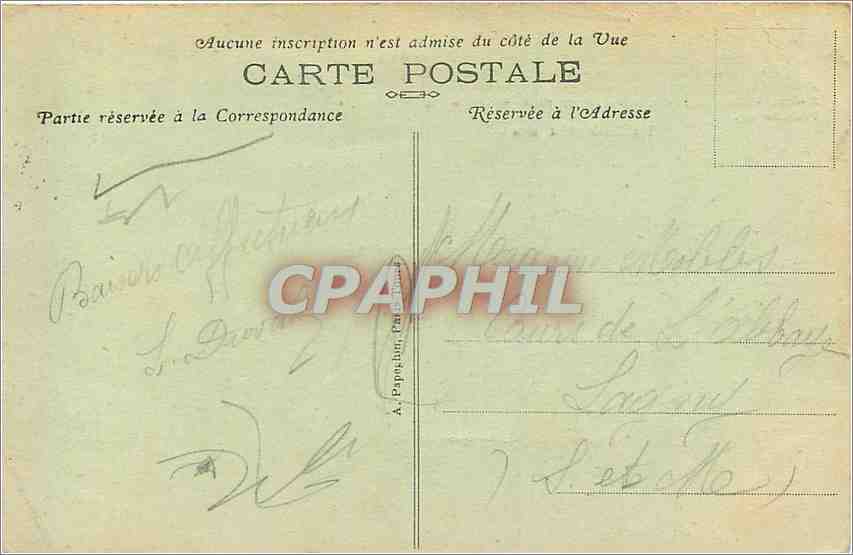 Aucune inscription n'est admise du côté de la Vue
CARTE POSTALE
Partie réservée à la Correspondance
Réservée à l'Adresse
Baisers affectueux
L. Duval
A. Papeghin, Paris-Tours
CPAPHIL
Cour de L'Abbaye
Lagny
(S. et M.)